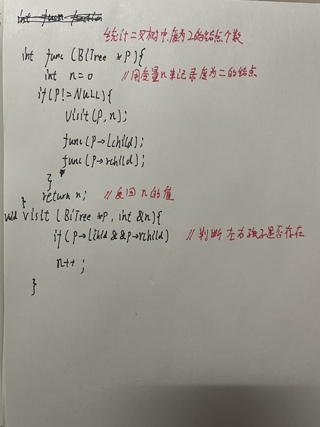 int func function
统计二叉树中,度为2的结点个数
int func (BiTree *P){
int n=0 //用变量n来记录度为二的结点
if(P!=NULL){
Visit(P,n);
func(P→lchild);
func(P→rchild);
}
return n; //返回n的值
}
void visit (BiTree *P, int &n){
if(P→lchild&&P→rchild) //判断左右孩子是否存在
n++;
}